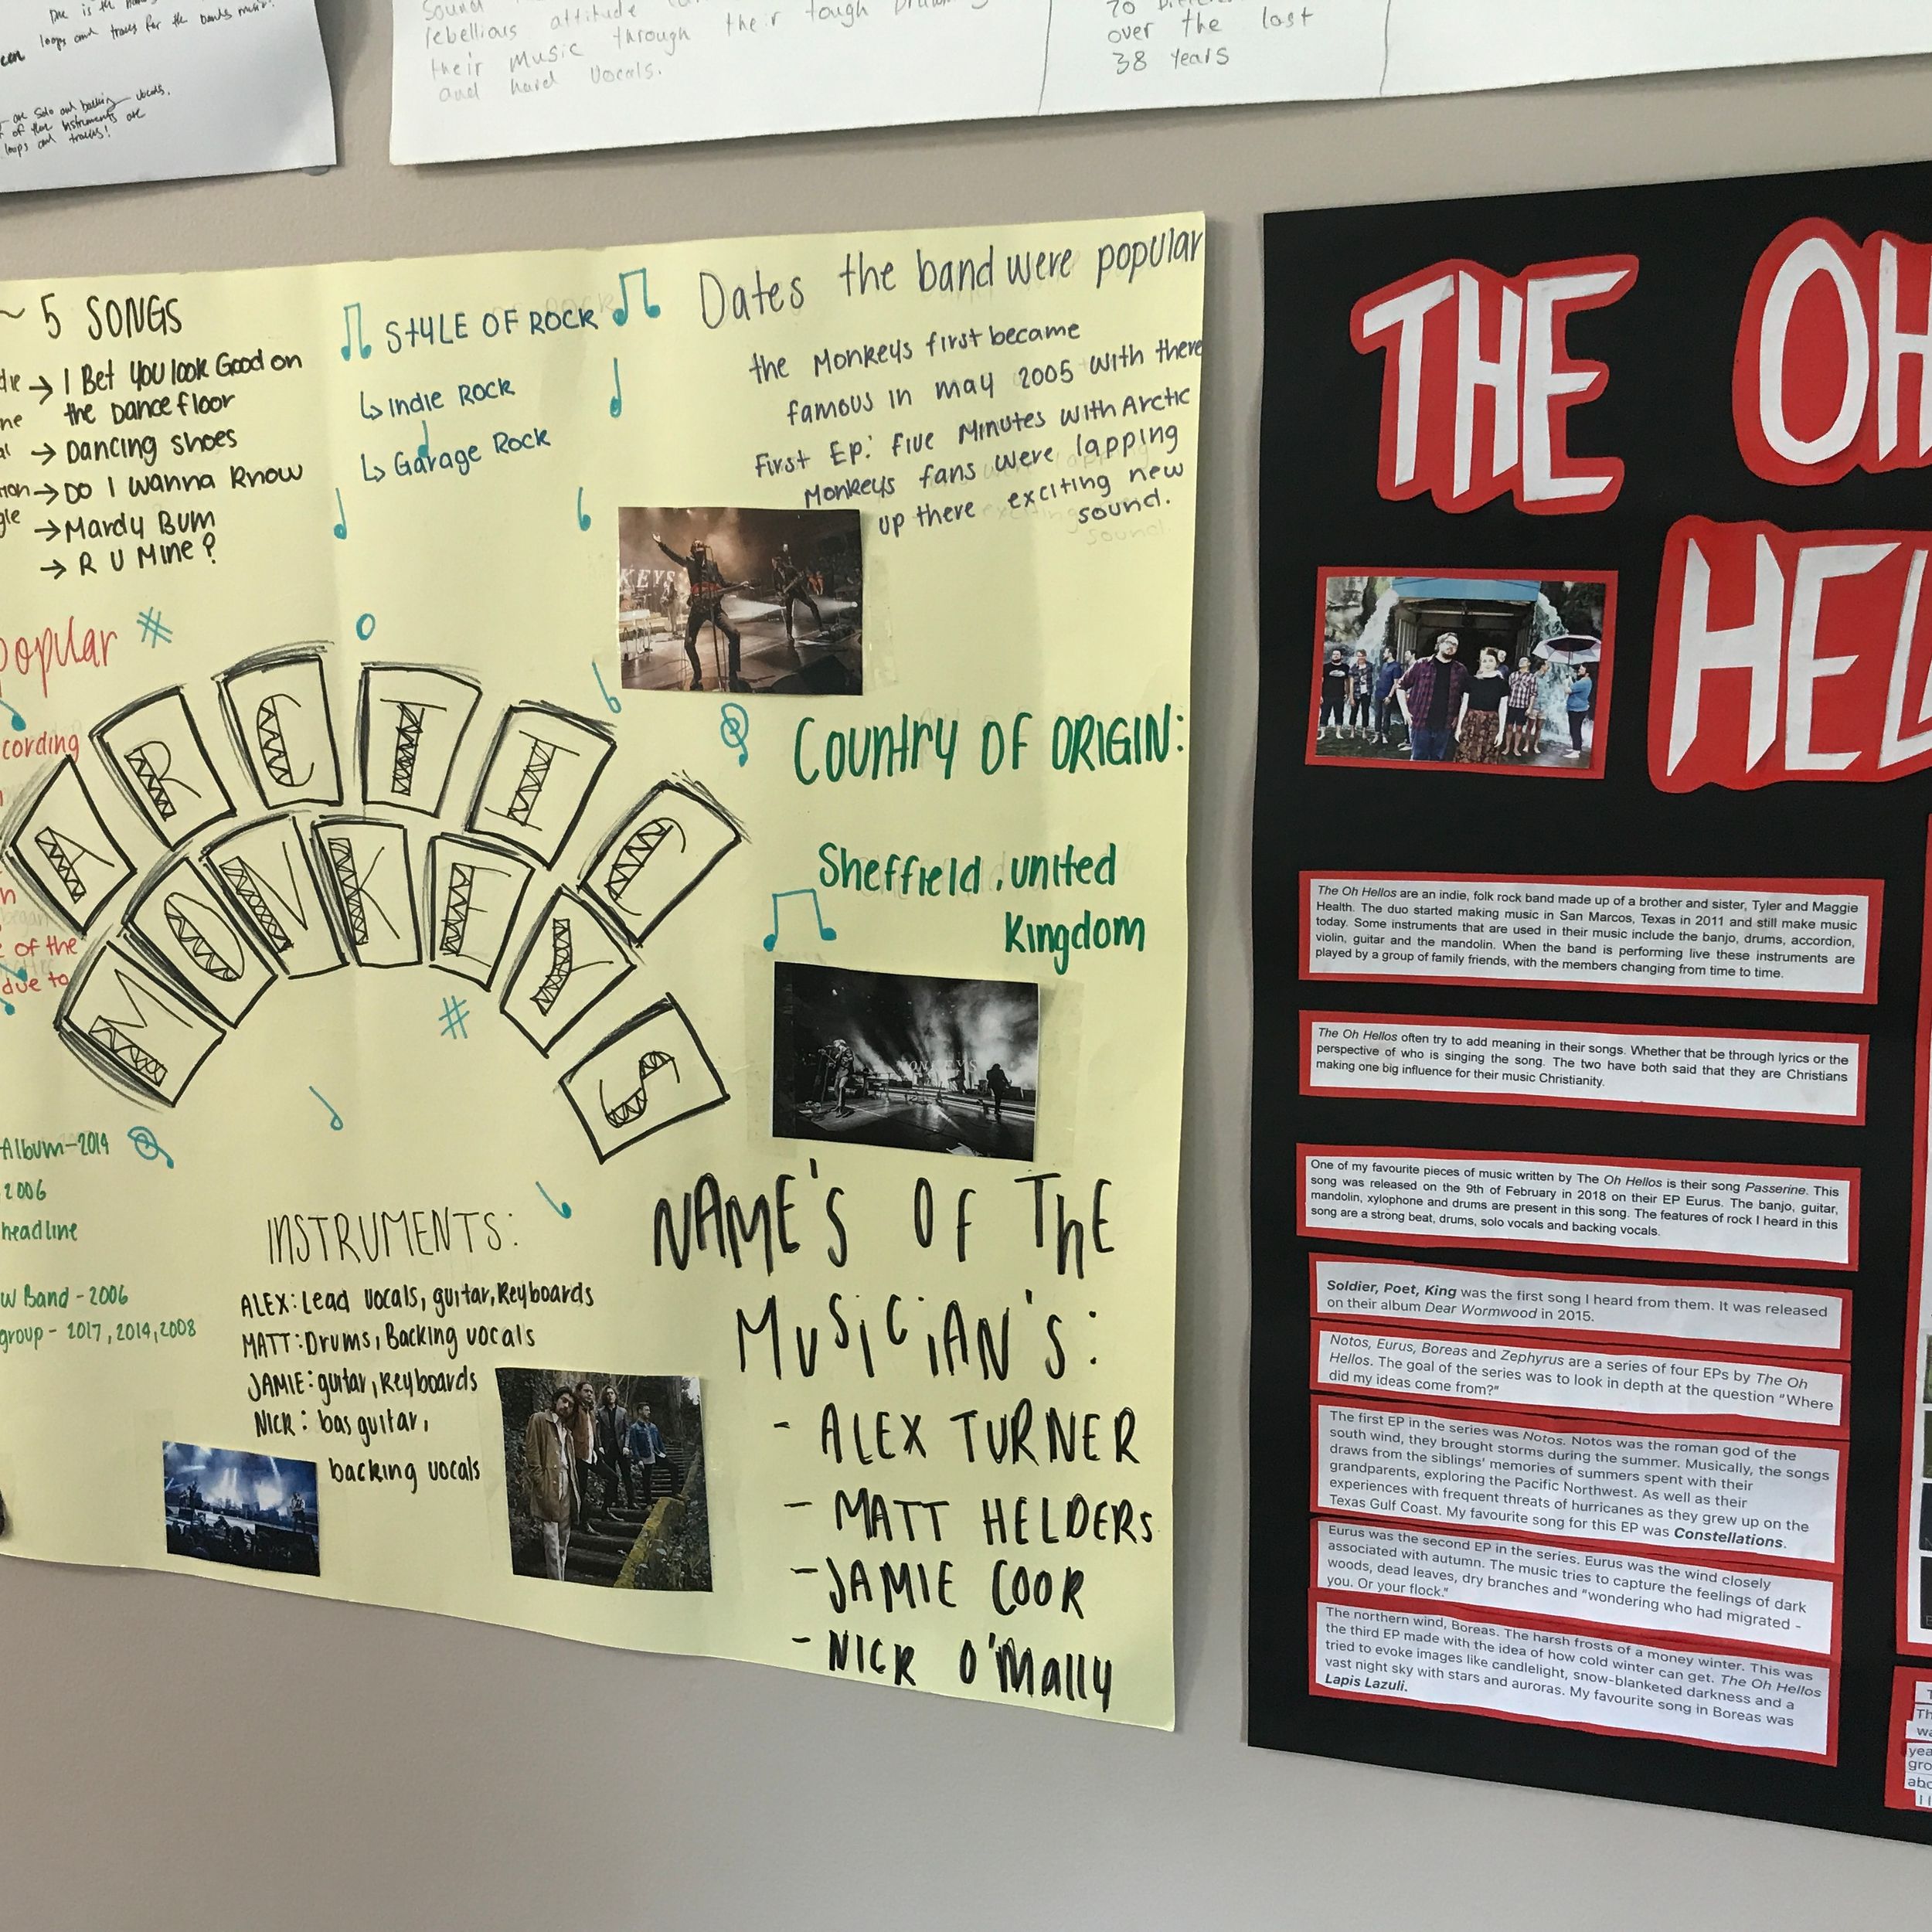 loops and tracks for the bands music.
are solo and backing vocals.
of these instruments are
loops and tracks!
Sound
rebellious attitude
their music through their tough
and hard vocals.
over the last
38 years
~ 5 SONGS
→ I Bet YOU look Good on
the Dancefloor
→ Dancing Shoes
→ DO I wanna know
→ Mardy Bum
→ R U Mine?
STYLE OF ROCK
↳ Indie Rock
↳ Garage Rock
Dates the band were popular
the Monkeys first became
famous in may 2005 with there
First Ep: Five Minutes with Arctic
Monkeys fans were lapping
up there exciting new
sound.
popular
cording
of the
due to
ARCTIC
MONKEYS
KEYS
Country OF ORIGIN:
Sheffield, united
Kingdom
Album-2014
2006
headline
w Band - 2006
group - 2017, 2014, 2008
INSTRUMENTS:
ALEX: Lead vocals, guitar, Keyboards
MATT: Drums, Backing vocals
JAMIE: guitar, keyboards
NICK: bas guitar,
backing vocals
NAME'S OF ThE
MUSICIAN'S:
- ALEX TURNER
- MATT HELDERS
- JAMIE COOK
- NICK O'Mally
THE OH
HEL
The Oh Hellos are an indie, folk rock band made up of a brother and sister, Tyler and Maggie
Health. The duo started making music in San Marcos, Texas in 2011 and still make music
today. Some instruments that are used in their music include the banjo, drums, accordion,
violin, guitar and the mandolin. When the band is performing live these instruments are
played by a group of family friends, with the members changing from time to time.
The Oh Hellos often try to add meaning in their songs. Whether that be through lyrics or the
perspective of who is singing the song. The two have both said that they are Christians
making one big influence for their music Christianity.
One of my favourite pieces of music written by The Oh Hellos is their song Passerine. This
song was released on the 9th of February in 2018 on their EP Eurus. The banjo, guitar,
mandolin, xylophone and drums are present in this song. The features of rock I heard in this
song are a strong beat, drums, solo vocals and backing vocals.
Soldier, Poet, King was the first song I heard from them. It was released
on their album Dear Wormwood in 2015.
Notos, Eurus, Boreas and Zephyrus are a series of four EPs by The Oh
Hellos. The goal of the series was to look in depth at the question "Where
did my ideas come from?"
The first EP in the series was Notos. Notos was the roman god of the
south wind, they brought storms during the summer. Musically, the songs
draws from the siblings' memories of summers spent with their
grandparents, exploring the Pacific Northwest. As well as their
experiences with frequent threats of hurricanes as they grew up on the
Texas Gulf Coast. My favourite song for this EP was Constellations.
Eurus was the second EP in the series. Eurus was the wind closely
associated with autumn. The music tries to capture the feelings of dark
woods, dead leaves, dry branches and "wondering who had migrated -
you. Or your flock."
The northern wind, Boreas. The harsh frosts of a money winter. This was
the third EP made with the idea of how cold winter can get. The Oh Hellos
tried to evoke images like candlelight, snow-blanketed darkness and a
vast night sky with stars and auroras. My favourite song in Boreas was
Lapis Lazuli.